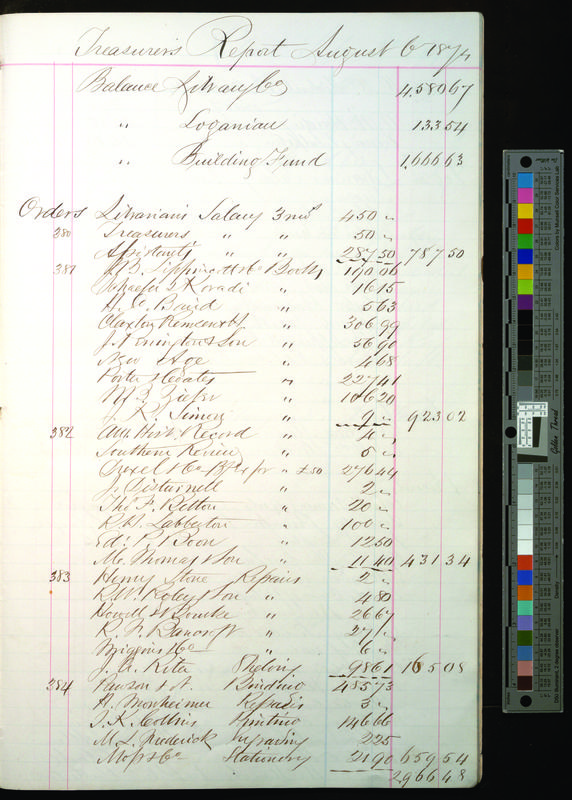 Treasurer's Report August 6 1874
Balance Library Co 4,580 67
" Loganian 133 54
" Building Fund 1,666 63
Orders Librarian's Salary 3 mos 450 "
380 Treasurers " " 50 "
Assistants " " 287 50 787 50
381 J B Lippincott & Co Books 190 06
Schaefer & Koradi " 16 15
H. C. Baird " 5 63
Claxton Remsen & Hf " 306 99
J. Penington & Son " 56 90
" 4 68
Porter & Coates " 227 41
" 106 20
J. R. Simon " 9 " 923 02
382 Am Hist. Record " 4 "
Southern Review " 5 "
Drexel & Co B Ex for " £50 276 44
J. Disturnell " 2 "
Thos F. Betton " 20 "
R. H. Labberton " 100 "
Ed. P. Boon " 12 50
Mc. Thomas & Son " 11 40 431 34
383 Henry Stone Repairs 2 "
R. W. & Son " 4 80
Howell & Bourke " 26 67
" 27 "
" 6 "
J. A. Shelving 98 61 165 08
384 Pawson & N. Binding 485 73
H. Monheimer Repairs 3 "
T. K. Collins Printing 146 66
M. L. Frederick Engraving 2 25
Moss & Co Stationery 21 90 659 54
2966 48
Golden Thread